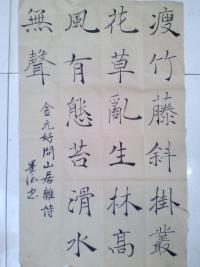 瘦竹藤斜掛叢
花草亂生林高
風有態苔滑水
無聲
金元好問山居雜詩